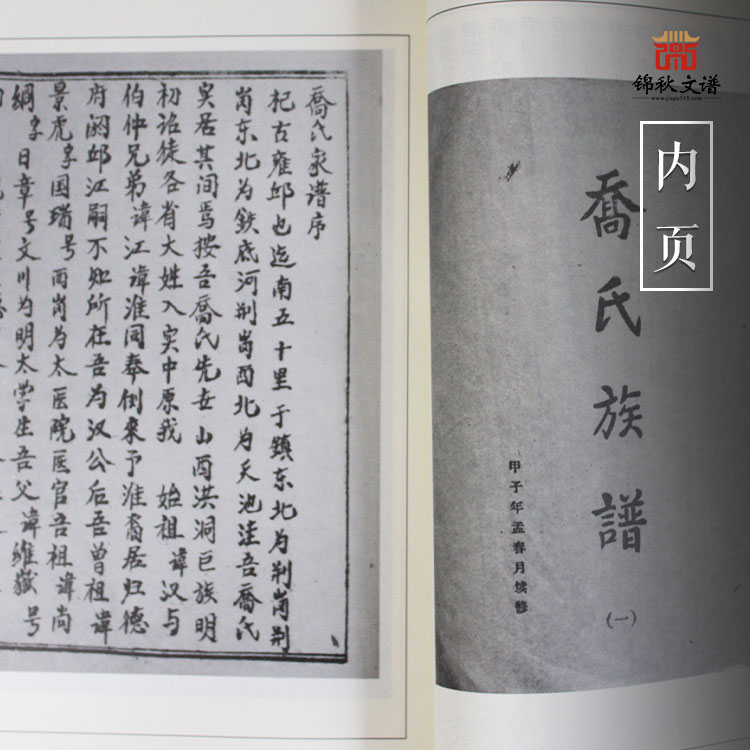 锦秋文谱
www.jiapu315.com
内页
喬氏族譜
(一)
甲子年孟春月续修
喬氏家谱序
杞古雍邱也迄南五十里于鎮东北为荆崗荆
崗东北为鉄底河荆崗西北为天池洼吾喬氏
吴居其间焉按吾喬氏先世山西洪洞巨族明
初诏徒各省大姓入实中原我 始祖諱汉与
伯仲兄弟諱江諱淮同奉倒来予淮裔居归德
府阙邱江嗣不知所在吾为汉公后吾曾祖諱
景虎字国瑞号西崗为太医院医官吾祖諱尚
綱字日章号文川为明太学生吾父諱維嶽号